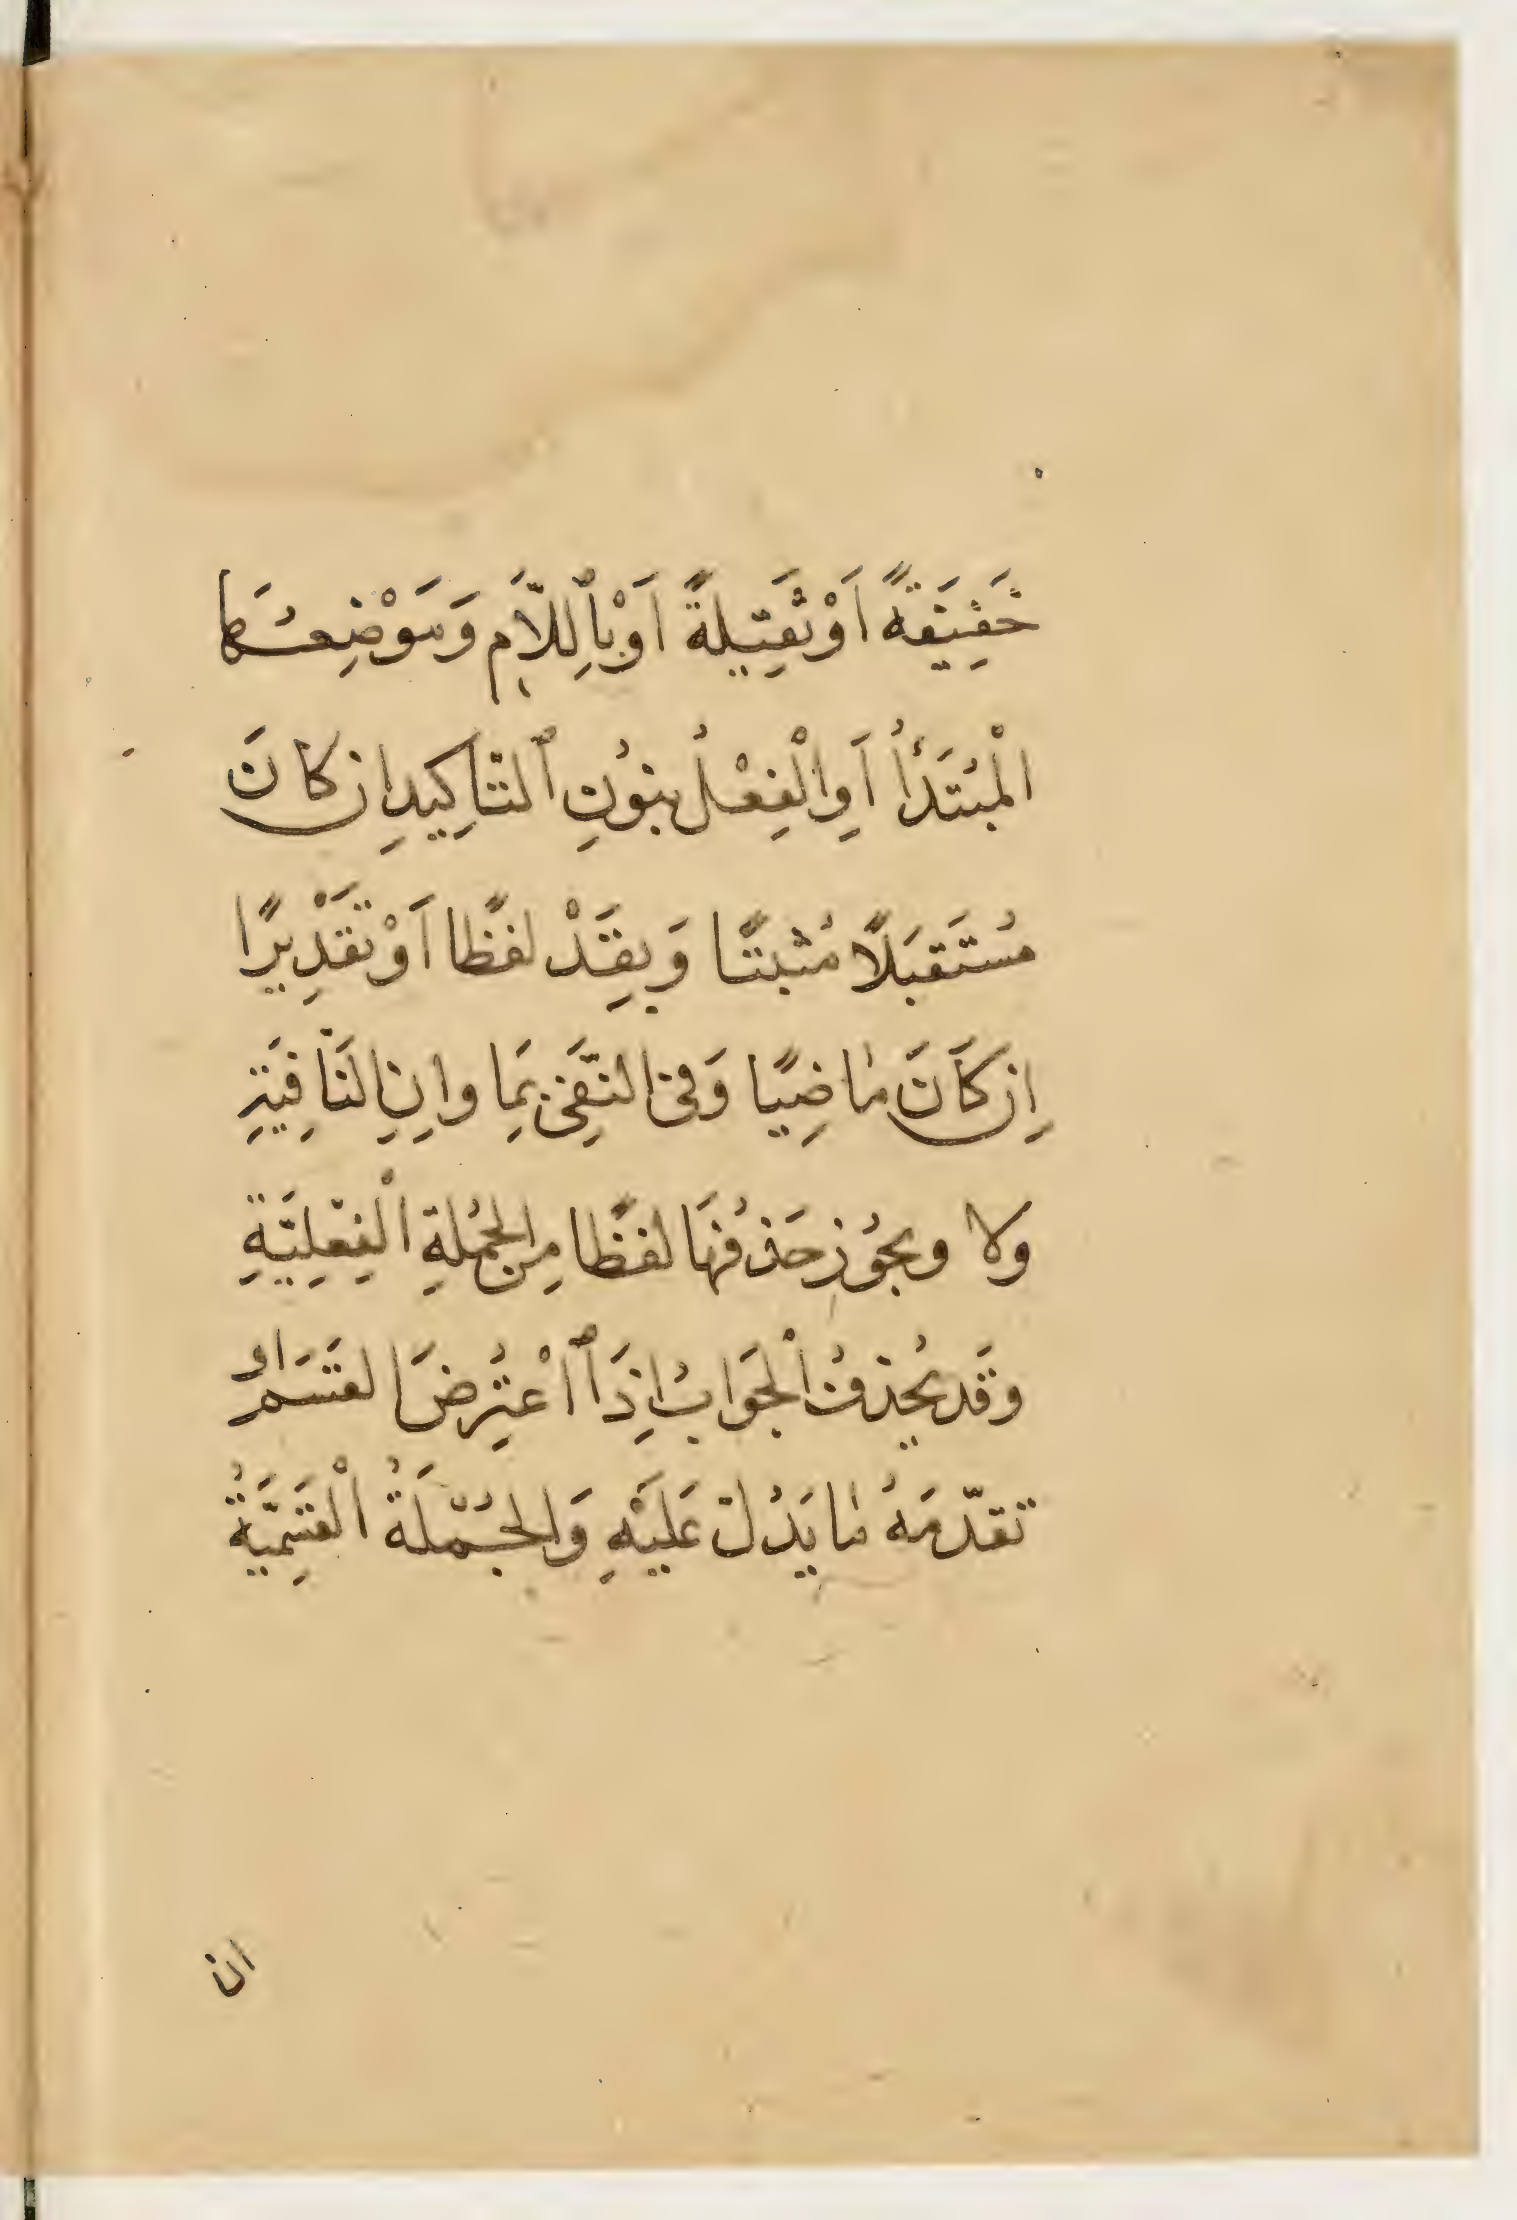 خَفِيَفَةً اَوْ ثَقِيلَةً اَوْ بِاْللَّامِ وَمَوْضِعُهَا
الْمُبْتَدَأُ اَوِالْفِعْلُ بِنُوُنِ اْلتَّاكِيدِ اِن كَانَ
مُسْتَقبَلًا مُثْبتًا وَبِقَدْ لفظًا اَوْ تَقْدِيرًا
اِن كَانَ مَاضِيًا وَفى النَّفىِ بمَِا واِنِ النَّافِيَتَينِ
ولا ويجوُز حَذفُهَا لفظًا مِن الجُملةِ الْفِعْلِيَّةِ
وقَد يُحذفُ الْجَوَابُ اِذَا اْعْتُرِضَ القَسَمُ او
تقدّمَهُ مَا يَدُلُّ عَلَيْهِ وَالجُمْلَةُ الْقَسَمِيَّةُ
ان